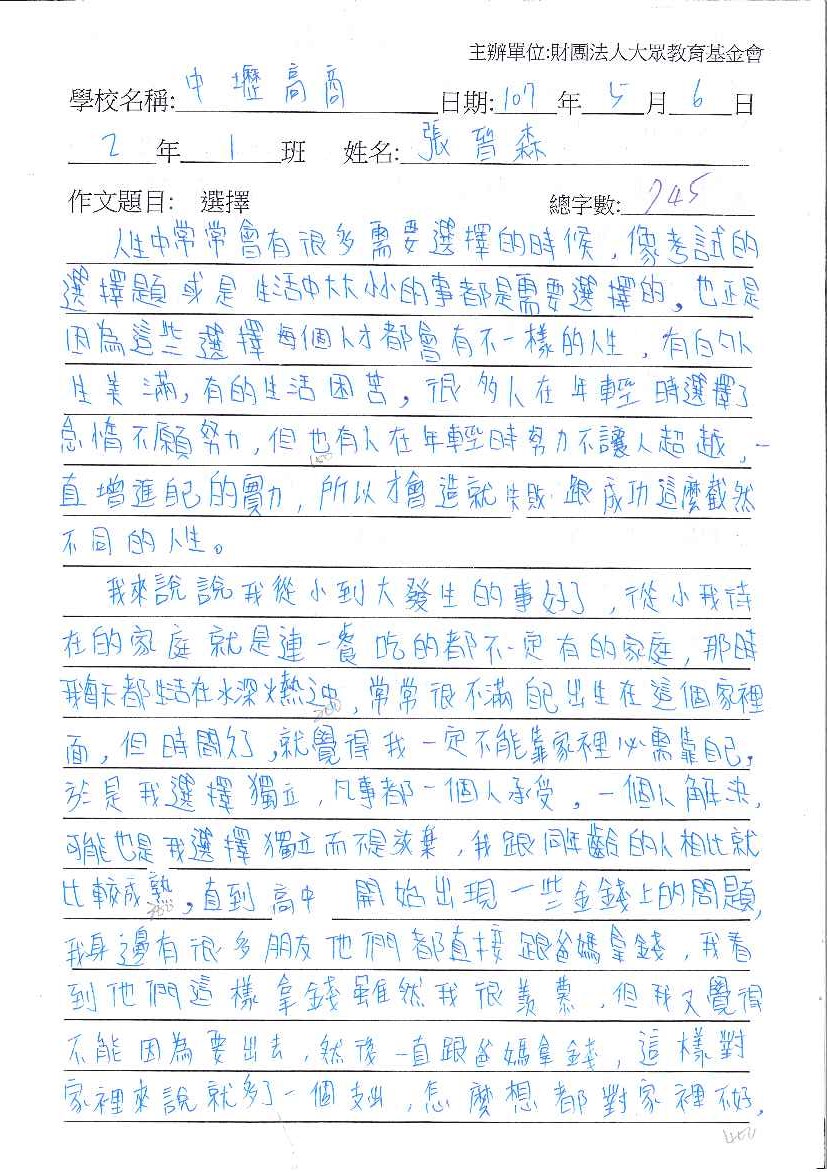 主辦單位:財團法人大眾教育基金會
學校名稱: 中壢高商 日期: 107 年 5 月 6 日
2 年 1 班 姓名: 張晉森
作文題目: 選擇 總字數: 745
人生中常常會有很多需要選擇的時候，像考試的
選擇題或是生活中大大小小的事都是需要選擇的，也正是
因為這些選擇每個人才都會有不一樣的人生，有的人
生美滿，有的生活困苦，很多人在年輕時選擇了
怠惰不願努力，但也有人在年輕時努力不讓人超越，一
直增進自己的實力，所以才會造就失敗跟成功這麼截然
不同的人生。
我來說說我從小到大發生的事好了，從小我待
在的家庭就是連一餐吃的都不一定有的家庭，那時
我每天都生活在水深火熱之中，常常很不滿自己出生在這個家裡
面，但時間久了，就覺得我一定不能靠家裡必需靠自己，
於是我選擇獨立，凡事都一個人承受，一個人解決，
可能也是我選擇獨立而不是放棄，我跟同年齡的人相比就
比較成熟，直到高中 開始出現一些金錢上的問題，
我身邊有很多朋友他們都直接跟爸媽拿錢，我看
到他們這樣拿錢雖然我很羨慕，但我又覺得
不能因為要出去，然後一直跟爸媽拿錢，這樣對
家裡來說就多了一個支出，怎麼想都對家裡不好，